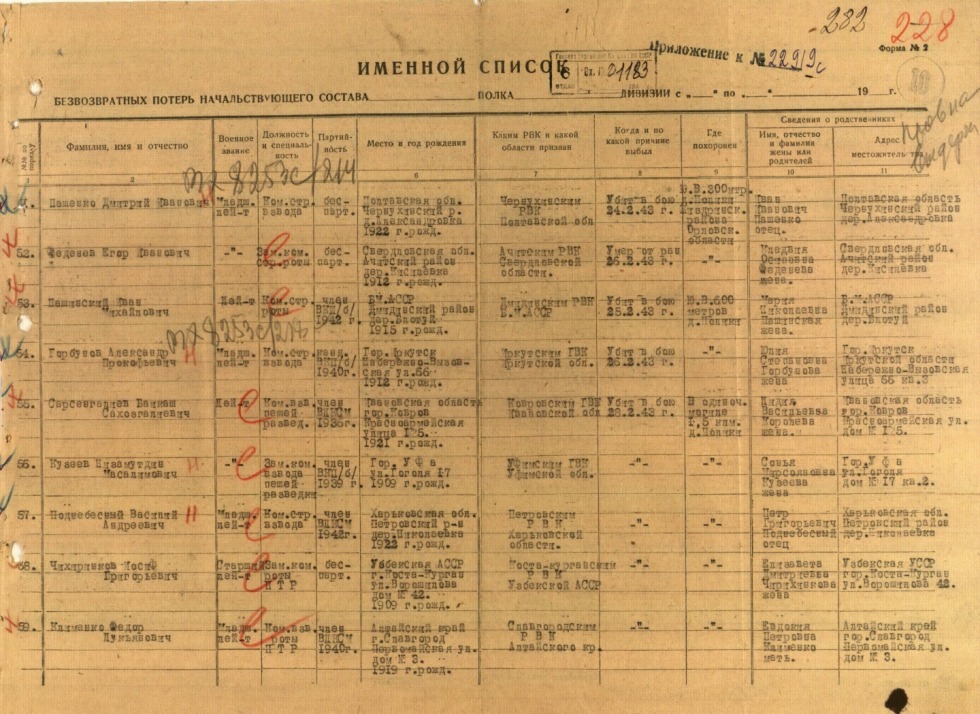 -282 228
Приложение к № 229/9с
Форма № 2
01183
10
ИМЕННОЙ СПИСОК
БЕЗВОЗВРАТНЫХ ПОТЕРЬ НАЧАЛЬСТВУЮЩЕГО СОСТАВА ПОЛКА ДИВИЗИИ с „ “ по „ “ 19 г.
№№ по порядку
Фамилия, имя и отчество
Военное звание
Должность и специальность
Партийность
Место и год рождения
Каким РВК и какой области призван
Когда и по какой причине выбыл
Где похоронен
Сведения о родственниках
Имя, отчество и фамилия жены или родителей
Адрес местожительства
2 6 7 8 9 10 11
Пашенко Дмитрий Иванович
Младш. лей-т
Ком.стр. взвода
бес-парт.
Полтавская обл.
Чернухинский р.
д.Александровка
1922 г.рожд.
Чернухинским
РВК
Полтавской обл.
Убит в бою
24.2.43 г.
Ю.В.300мтр.
района
Орловск.
области
Иван
Иванович
Пашенко
отец.
Полтавская область
Чернухинский район
дер.Александровка
52. Феденев Егор Иванович
-"-
Зам.ком.
бес-парт.
Свердловская обл.
Ачитский район
1912 г.рожд.
Ачитский РВК
Свердловской
области.
Умер от ран
26.2.43 г.
-"-
Клавдия
Феденева
жена.
Свердловская обл.
Ачитский район
53. Пашинский Иван
Михайлович
Лей-т
Ком.стр.
роты
член
ВКП/б/
1942 г.
Б.М.АССР
1915 г.рожд.
Б.М.АССР
Убит в бою
25.2.43 г.
Ю.В.600
метров
Мария
Николаевна
Пашинская
жена.
Б.М.АССР
54. Горбунов Александр
Прокофьевич
Младш.
лей-т
Ком.стр.
взвода
канд.
ВКП/б/
1940г.
Гор.Иркутск
1912 г.рожд.
Иркутским ГВК
Иркутской обл.
Убит в бою
26.2.43 г.
-"-
Юлия
Степановна
Горбунова
жена
Гор.Иркутск
Иркутской области
55.
Лей-т
Ком.взв.
пешей
развед.
член
ВЛКСМ
1938г.
Ивановская область
гор.Ковров
Красноармейская
улица 125.
1921 г.рожд.
Ковровским ГВК
Ивановской обл
Убит в бою
28.2.43 г.
В одиноч.
могиле
Лидия
Васильевна
Королева
жена.
Ивановская область
гор.Ковров
Красноармейская ул.
дом № 125.
56. Кузеев Низамутдин
Масалимович
-"-
Зам.ком.
взвода
пешей
разведки
член
ВКП/б/
1939 г.
Гор. Уфа
ул.Гоголя 17
1909 г.рожд.
Уфимским ГВК
Уфимской обл.
-"-
-"-
Кузеева
жена
Гор.Уфа
ул.Гоголя
дом № 17 кв.2.
57. Поднебесный Василий
Андреевич
Младш.
лей-т
Ком.стр.
взвода
член
ВЛКСМ
1942г.
Харьковская обл.
Петровский р-н
дер.Николаевка
1922 г.рожд.
Петровским
Р В К
Харьковской
области.
-"-
-"-
Петр
Григорьевич
Поднебесный
отец
Харьковская обл.
Петровский район
дер.Николаевка
58. Чихирников Иосиф
Григорьевич
Старший
лей-т
Зам.ком.
роты
П Т Р
бес-парт.
Узбекская АССР
г.Коста-Курган
ул.Ворошилова
дом № 42.
1909 г.рожд.
Коста-курганским
Р В К
Узбекской АССР
-"-
-"-
Елизавета
Дмитриевна
жена
Узбекская УССР
гор.Коста-Курган
ул.Ворошилова 42.
59. Клименко Федор
Лукьянович
Младш.
лей-т
Ком.взв.
роты
П Т Р
член
ВЛКСМ
1940г.
Алтайский край
г.Славгород
Первомайская ул.
дом № 3.
1919 г.рожд.
Славгородским
Р В К
Алтайского кр.
-"-
-"-
Евдокия
Петровна
Клименко
мать.
Алтайский край
гор.Славгород
Первомайская ул.
дом № 3.